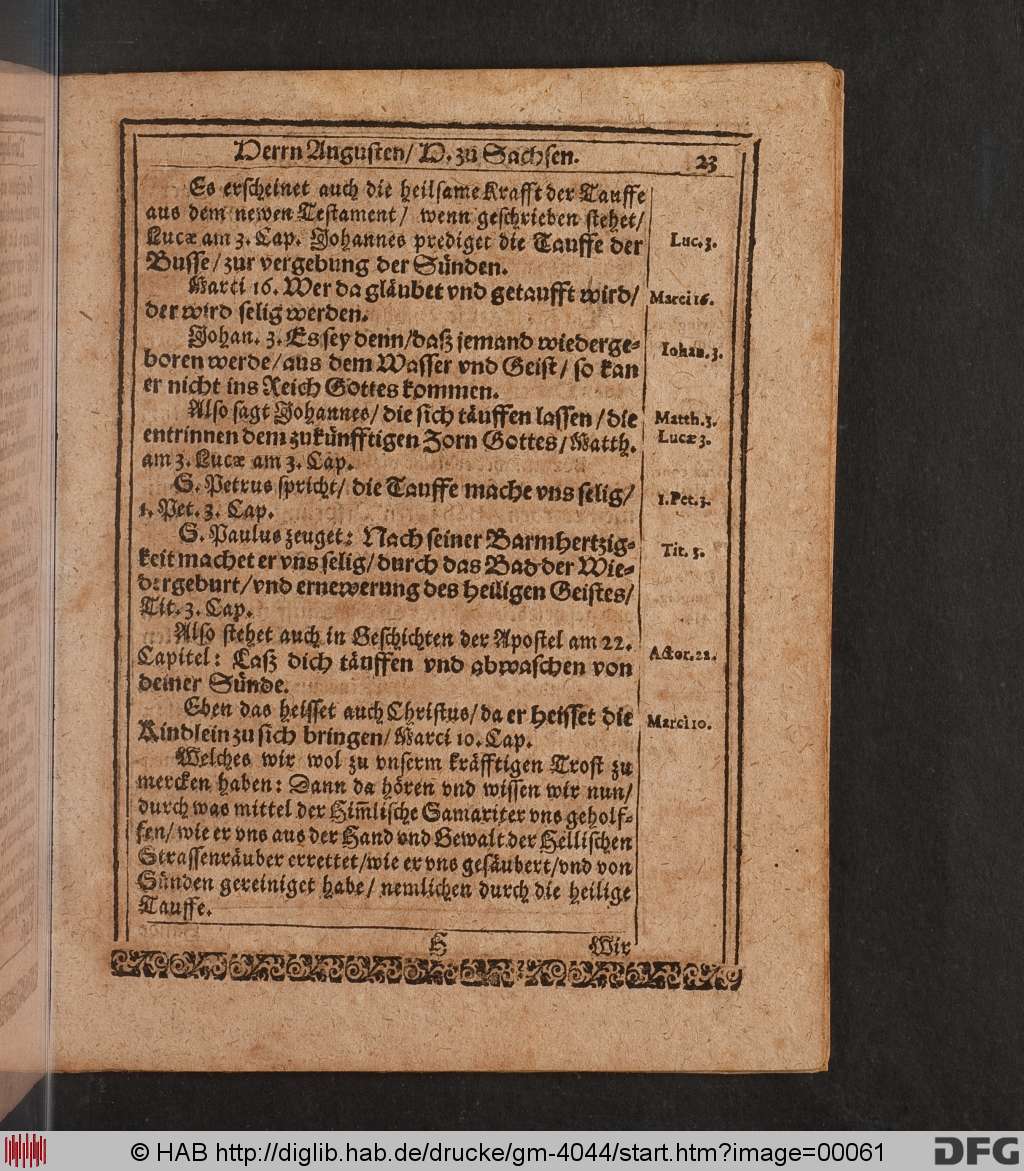 Herrn Augusten/ H. zu Sachsen.
23
Es erscheinet auch die heilsame Krafft der Tauffe
aus dem newen Testament/ wenn geschrieben stehet/
Lucæ am 3. Cap. Johannes prediget die Tauffe der
Busse/ zur vergebung der Sünden.
Luc. 3.
Marci 16. Wer da gläubet vnd getaufft wird/
der wird selig werden.
Marci 16.
Johan. 3. Es sey denn/ daß jemand wiederge-
boren werde/ aus dem Wasser vnd Geist/ so kan
er nicht ins Reich Gottes kommen.
Iohan. 3.
Also sagt Johannes/ die sich täuffen lassen/ die
entrinnen dem zukünfftigen Zorn Gottes/ Matth.
am 3. Lucæ am 3. Cap.
Matth. 3.
Lucæ 3.
S. Petrus spricht/ die Tauffe mache vns selig/
1. Pet. 3. Cap.
1. Pet. 3.
S. Paulus zeuget: Nach seiner Barmhertzig-
keit machet er vns selig/ durch das Bad der Wie-
dergeburt/ vnd ernewerung des heiligen Geistes/
Tit. 3. Cap.
Tit. 3.
Also stehet auch in Geschichten der Apostel am 22.
Capitel: Laß dich täuffen vnd abwaschen von
deiner Sünde.
Actor. 22.
Eben das heisset auch Christus/ da er heisset die
Kindlein zu sich bringen/ Marci 10. Cap.
Marci 10.
Welches wir wol zu vnserm kräfftigen Trost zu
mercken haben: Dann da hören vnd wissen wir nun/
durch was mittel der Him̃lische Samariter vns geholf-
fen/ wie er vns aus der Hand vnd Gewalt der Hellischen
Strassenräuber errettet/ wie er vns gesäubert/ vnd von
Sünden gereiniget habe/ nemlichen durch die heilige
Tauffe.
H
Wir
© HAB http://diglib.hab.de/drucke/gm-4044/start.htm?image=00061
DFG